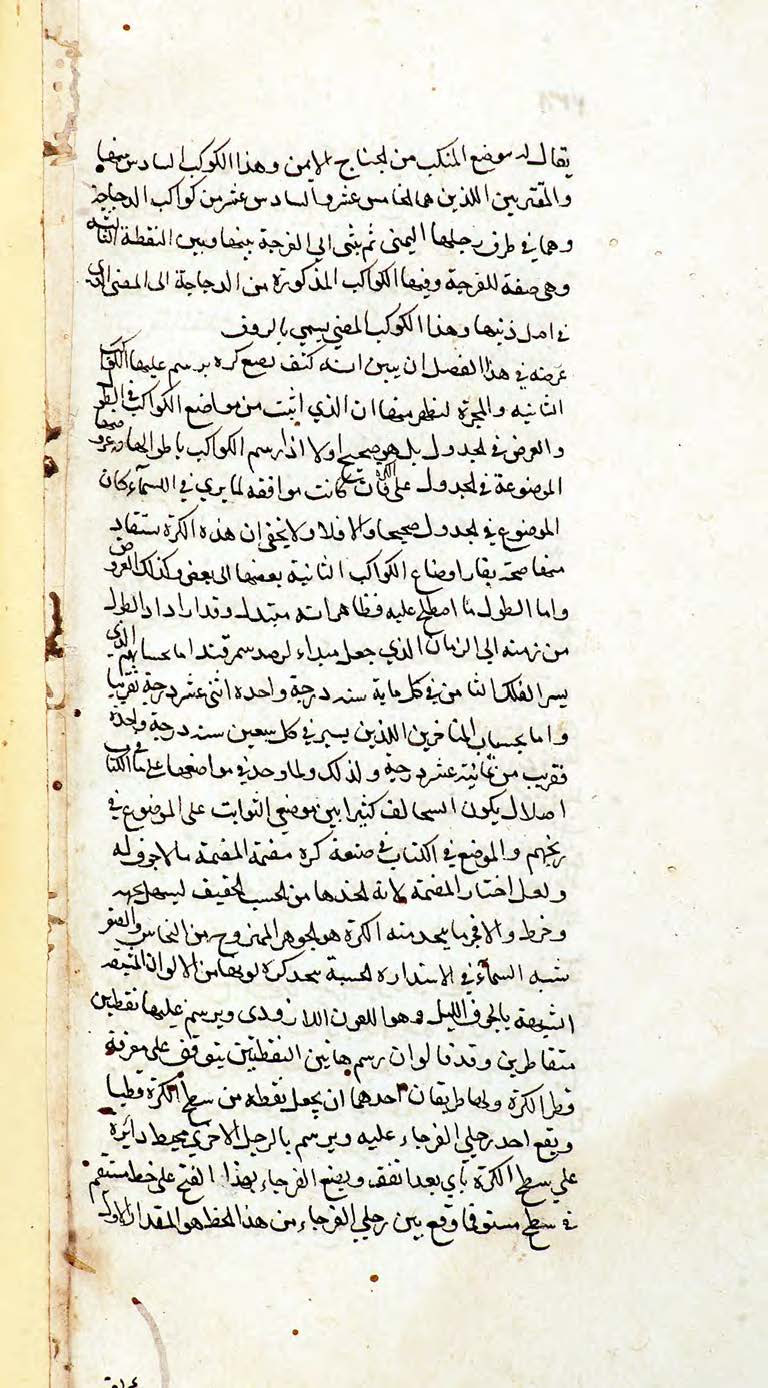 يقال له موضع المنكب من الجناح الايمن وهذا الكوكب السادس منها
والمقتربين اللذين هما الخامس عشر والسادس عشر من كواكب الدجاجة
وهما في طرف رجلها اليمنى ثم يثنى الى الفرجة بينها وبين النقطة الثالثة
وهي صفة للفرجة وفيها الكواكب المذكورة من الدجاجة الى المضي الذي
في اصل ذنبها وهذا الكوكب المضي يسمى بالردف
غرضه في هذا الفصل ان يبين انه كيف يصنع كره يرسم عليها الكواكب
الثابته والمجرة ليظهر منها ان الذي اثبت من مواضع الكواكب في الطول
والعرض في الجدول بل هو صحيح او لا اذا رسم الكواكب باطوالها وعروضها
الموضوعة في الجدول على الكرة فان كانت موافقه لما يرى في السماء كان
الموضوع في الجدول صحيحا والا فلا ولا يخفى ان هذه الكرة ستفاد
منها صحة مقدار اوضاع الكواكب الثابتة بعضها الى بعض وكذلك العروض
واما الطول ما اصطلح عليه فظاهر انه مبتدل وقد ازداد الطول
من زمنه الى الزمان الذي جعل مبداء لرصد سمرقند اما بحسابهم الذي
يسير الفلك الثامن في كل ماية سنه درجة واحدة اثنى عشر درجة تقريبا
واما بحساب المتاخرين اللذين يسير في كل سبعين سنه درجة واحدة
فقريب من ثمانية عشر درجة ولذلك ولما وجد في مواضعها على ما في الكتاب
اختلال يكون التخالف كثيرا بين موضع الثوابت على الموضوع في
زيجهم والموضع في الكتاب في صنعة كرة مصمتة المصمتة ما لا جوف له
ولعل اختار المصمتة لانه اتخذها من الخشب الخفيف ليسهل نحته
وخرط والا فخير ما يتخذ منه الكرة هو الجوهر الممزوج من النحاس والصفر
شبه السماء في الاستدارة الحسية يتخذ كرة لونها من الالوان المشبعه
الشبيهة بالجوف الليل وهو اللون اللازودي ويرسم عليها نقطتين
متقاطرين وقد قالوا ان رسم هاتين النقطتين يتوقف على معرفة
قطر الكرة ولها طريقان احدهما ان يجعل نقطه من سطح الكرة قطبا
ويقع احد رجلي الفرجار عليه ويرسم بالرجل الاخرى محيط دائرة
على سطح الكرة باي بعد اتفق ويضع الفرجار بهذا الفتح على خط مستقيم
في سطح مستو فما وقع بين رجلي الفرجار من هذا الخط هو المقدار الاول